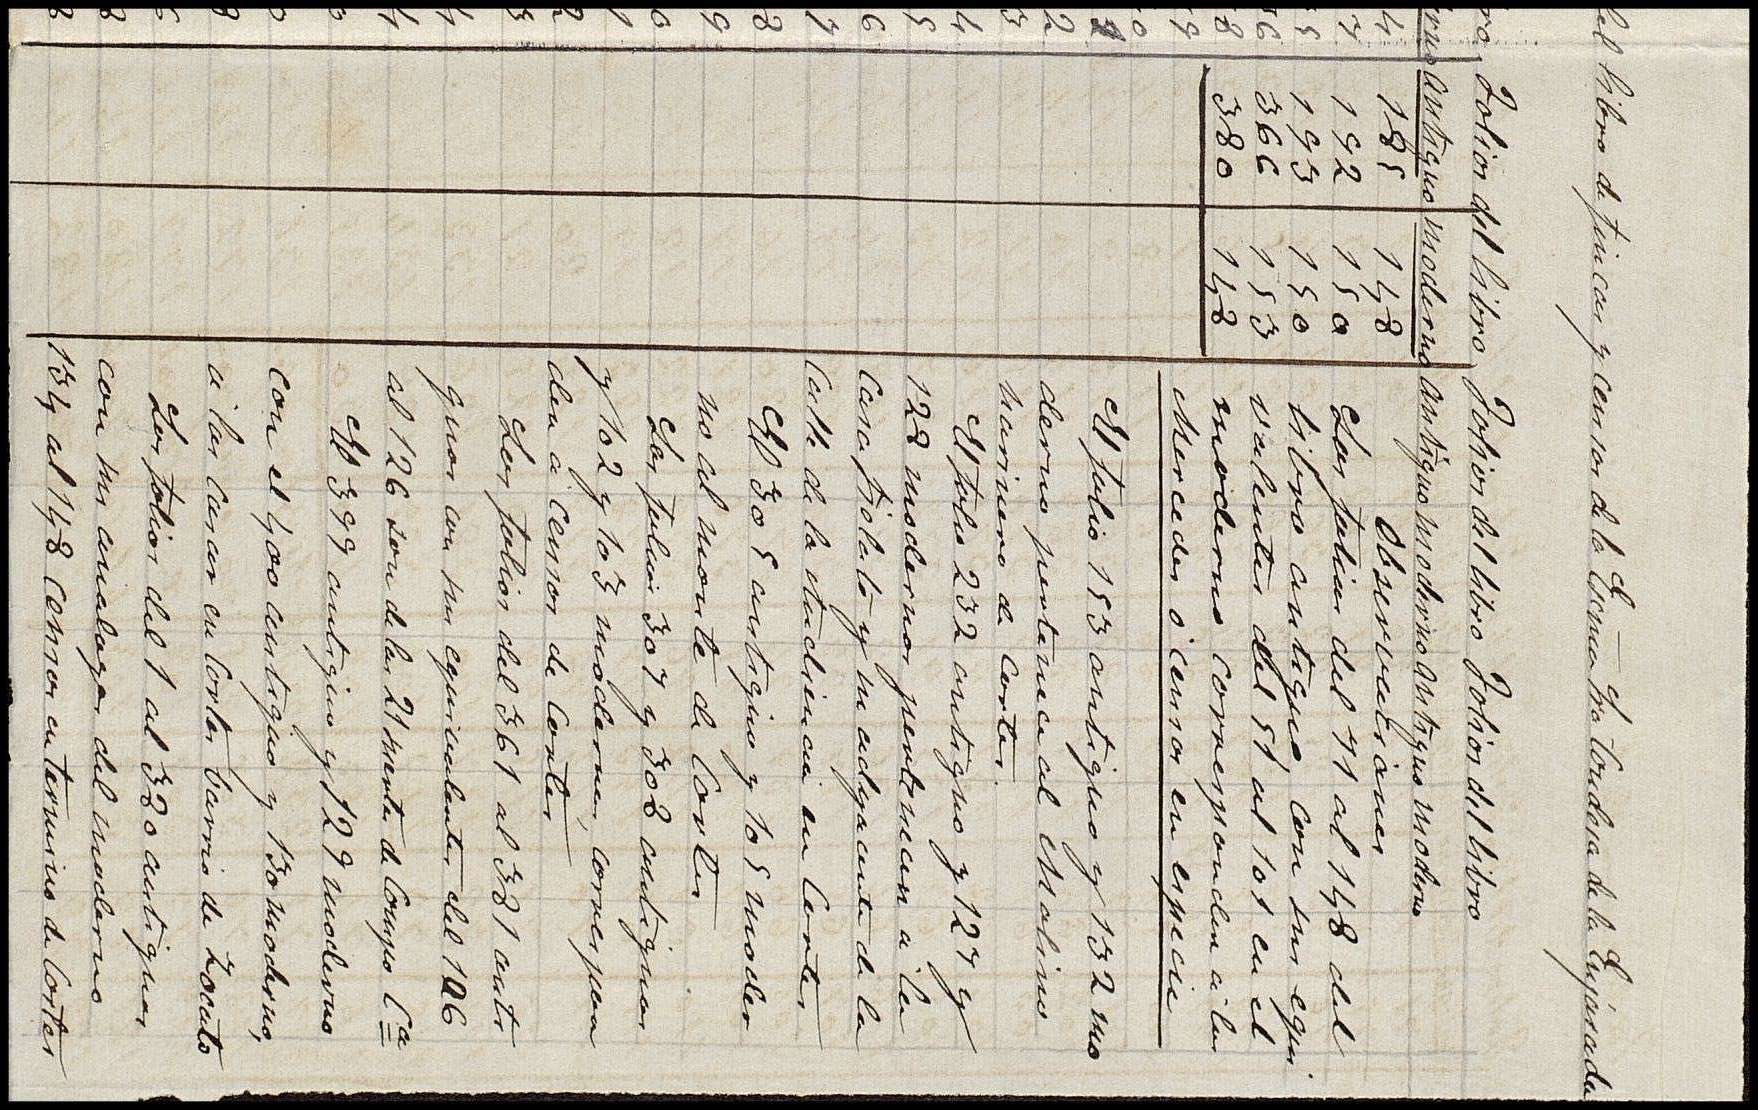 del Libro de fincas y censos de la Excma Sra Condesa de la Lapisada
ro Folios del libro Folios del libro Folios del libro
erno antiguo moderno antiguo moderno antiguo moderno
4 185 148
7 192 150
5 193 150
6 366 153
8 380 148
Observaciones
Los folios del 71 al 148 del
libro antiguo, con sus equi
valentes del 51 al 101 en el
moderno corresponden a las
Mercedes o censos en especie
El folio 153 antiguo y 132 mo
derno pertenece al Molino
harinero de Cortes.
El folio 232 antiguo y 127 y
128 modernos pertenecen a la
Casa Fiolato y su adyacente de la
Calle de la Audiencia en Cortes
El 305 antiguo y 105 moder
no al monte de Cortes
Los folios 307 y 308 antiguos
y 102 y 103 modernos, correspon
den a Censos de Cortes
Los folios del 361 al 381 anti
guos con sus equivalentes del 106
al 126 son de las 21 suertes de Campo Cª
El 399 antiguo y 129 moderno
con el 400 antiguo y 130 moderno,
a las casas en Cortes barrio de Zocato
Los folios del 1 al 380 antiguos
con sus analogos del moderno
134 al 148 Censos en termino de Cortes